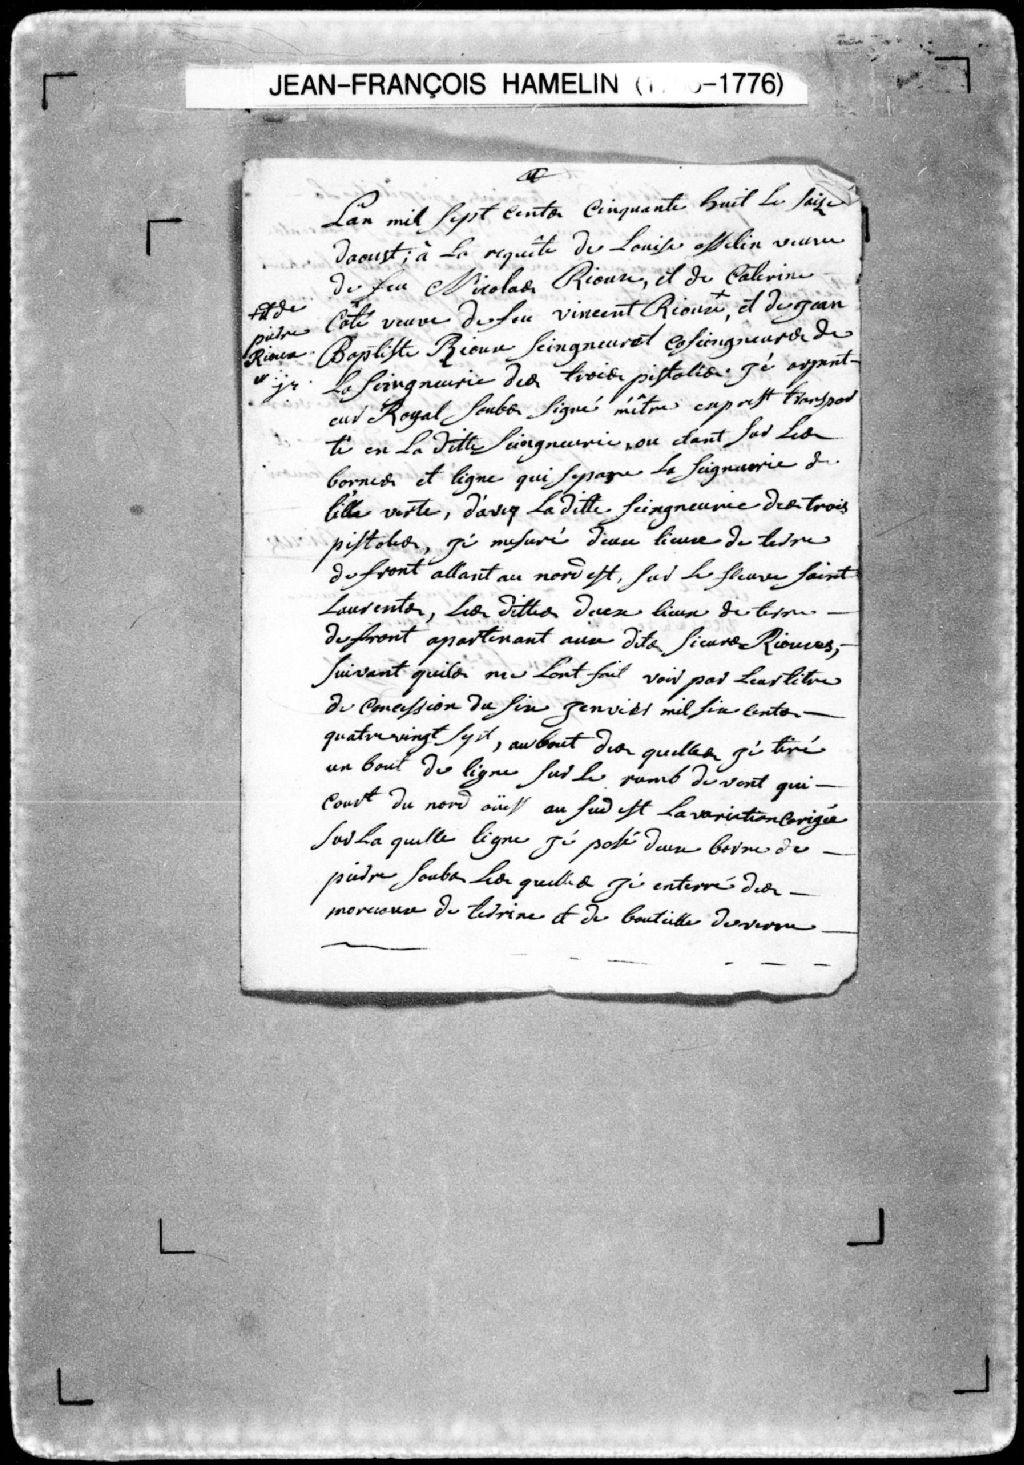 JEAN-FRANÇOIS HAMELIN (1 –1776)
Lan mil sept cents cinquante huit le saize
daoust, â La requête de Louise asselin veuve
de feu Nicolas Rioux, et de Caterine
Côté veuve de feu vincent Rioux +, et de jean
+ et de
pierre
Rioux
Baptiste Rioux seingneur et coseingneurs de
La seingneurie des trois pistolles jé arpent-
eur Royal soubs signé mêtre expret transpor
té en La ditte seingneurie, ou etant sur Les
bornes et ligne qui separe La seigneurie de
lille verte, daveq La ditte seingneurie des trois
pistoles, jé mesuré deux lieux de terre
de front allant au nord est, sur le fleuve saint
Laurents, Les dittes deux lieux de terre —
de front apartenant aux dits sieurs Riouxes, —
suivant quils me Lont fait voir par Leur titre
de concession du six jenvier mil six cents —
quatrevingt sept, au bout des quelles jé tiré
un bout de ligne sur Le rumb de vent qui —
court du nord oüest au sud est La variation corigée
sur La quelle ligne jé posé deux borne de —
pierre soubs Les quelles jé enterré des —
morceaux de terrine et de bouteille de verre —